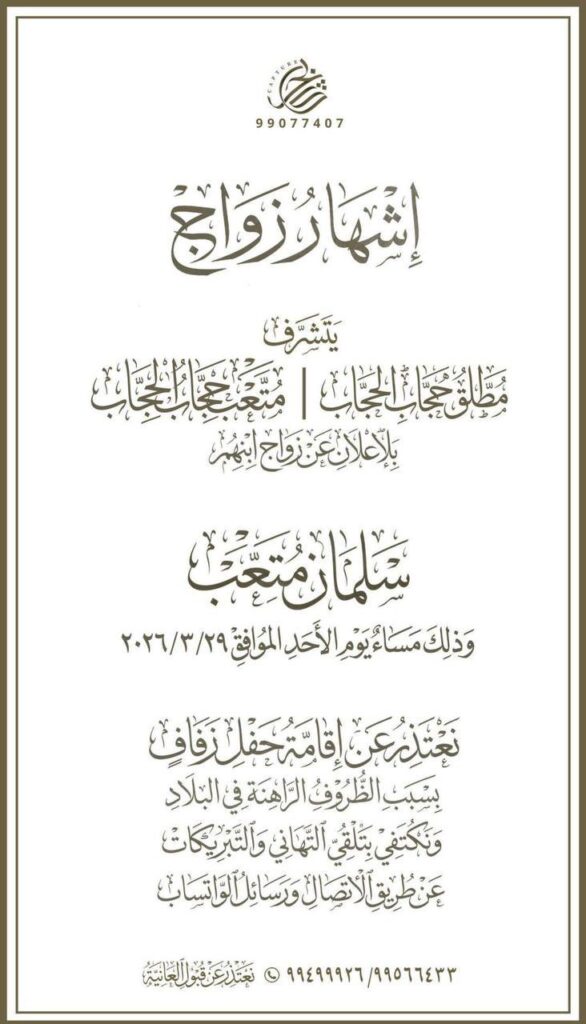 CAPTURE
99077407
إِشْهَارُ زَوَاج
يَتَشَرَّف
مُطْلَقُ حَجَّابِ الحَجَّاب | مُتْعِبْ حَجَّابُ الحَجَّاب
بِالْأعْلَانِ عَنْ زَوَاج ابْنِهُم
سَلْمَان مُتعِبْ
وَذلِكَ مَسَاءُ يَوْمِ الأَحَدِ المُوَافِقْ ٢٠٢٦/٣/٢٩
نَعْتَذِرُ عَن إِقَامَةُ حَفْلِ زَفَافٍ
بِسَبَبِ الظُّرُوْفُ الرَّاهِنَة فِي البْلَادِ
وَنَكْتَفِي بِتَلْقِيّ التَّهَانِي وَالتَّبْرِيكَات
عَنْ طَرِيقِ الْأتصَالِ وَرَسَائِلُ الْوَاتسَاب
٩٩٤٩٩٩٢٦/٩٩٥٦٦٤٣٣ نَعْتَذِرُ عَن قُبُولِ الْعَانِيَّة